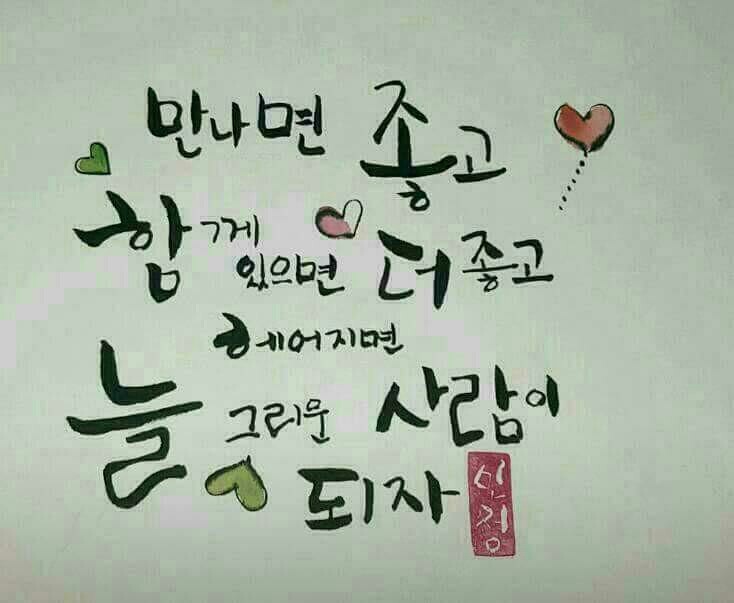 만나면 좋고
함께 있으면 더 좋고
헤어지면
늘 그리운 사람이
되자
인정